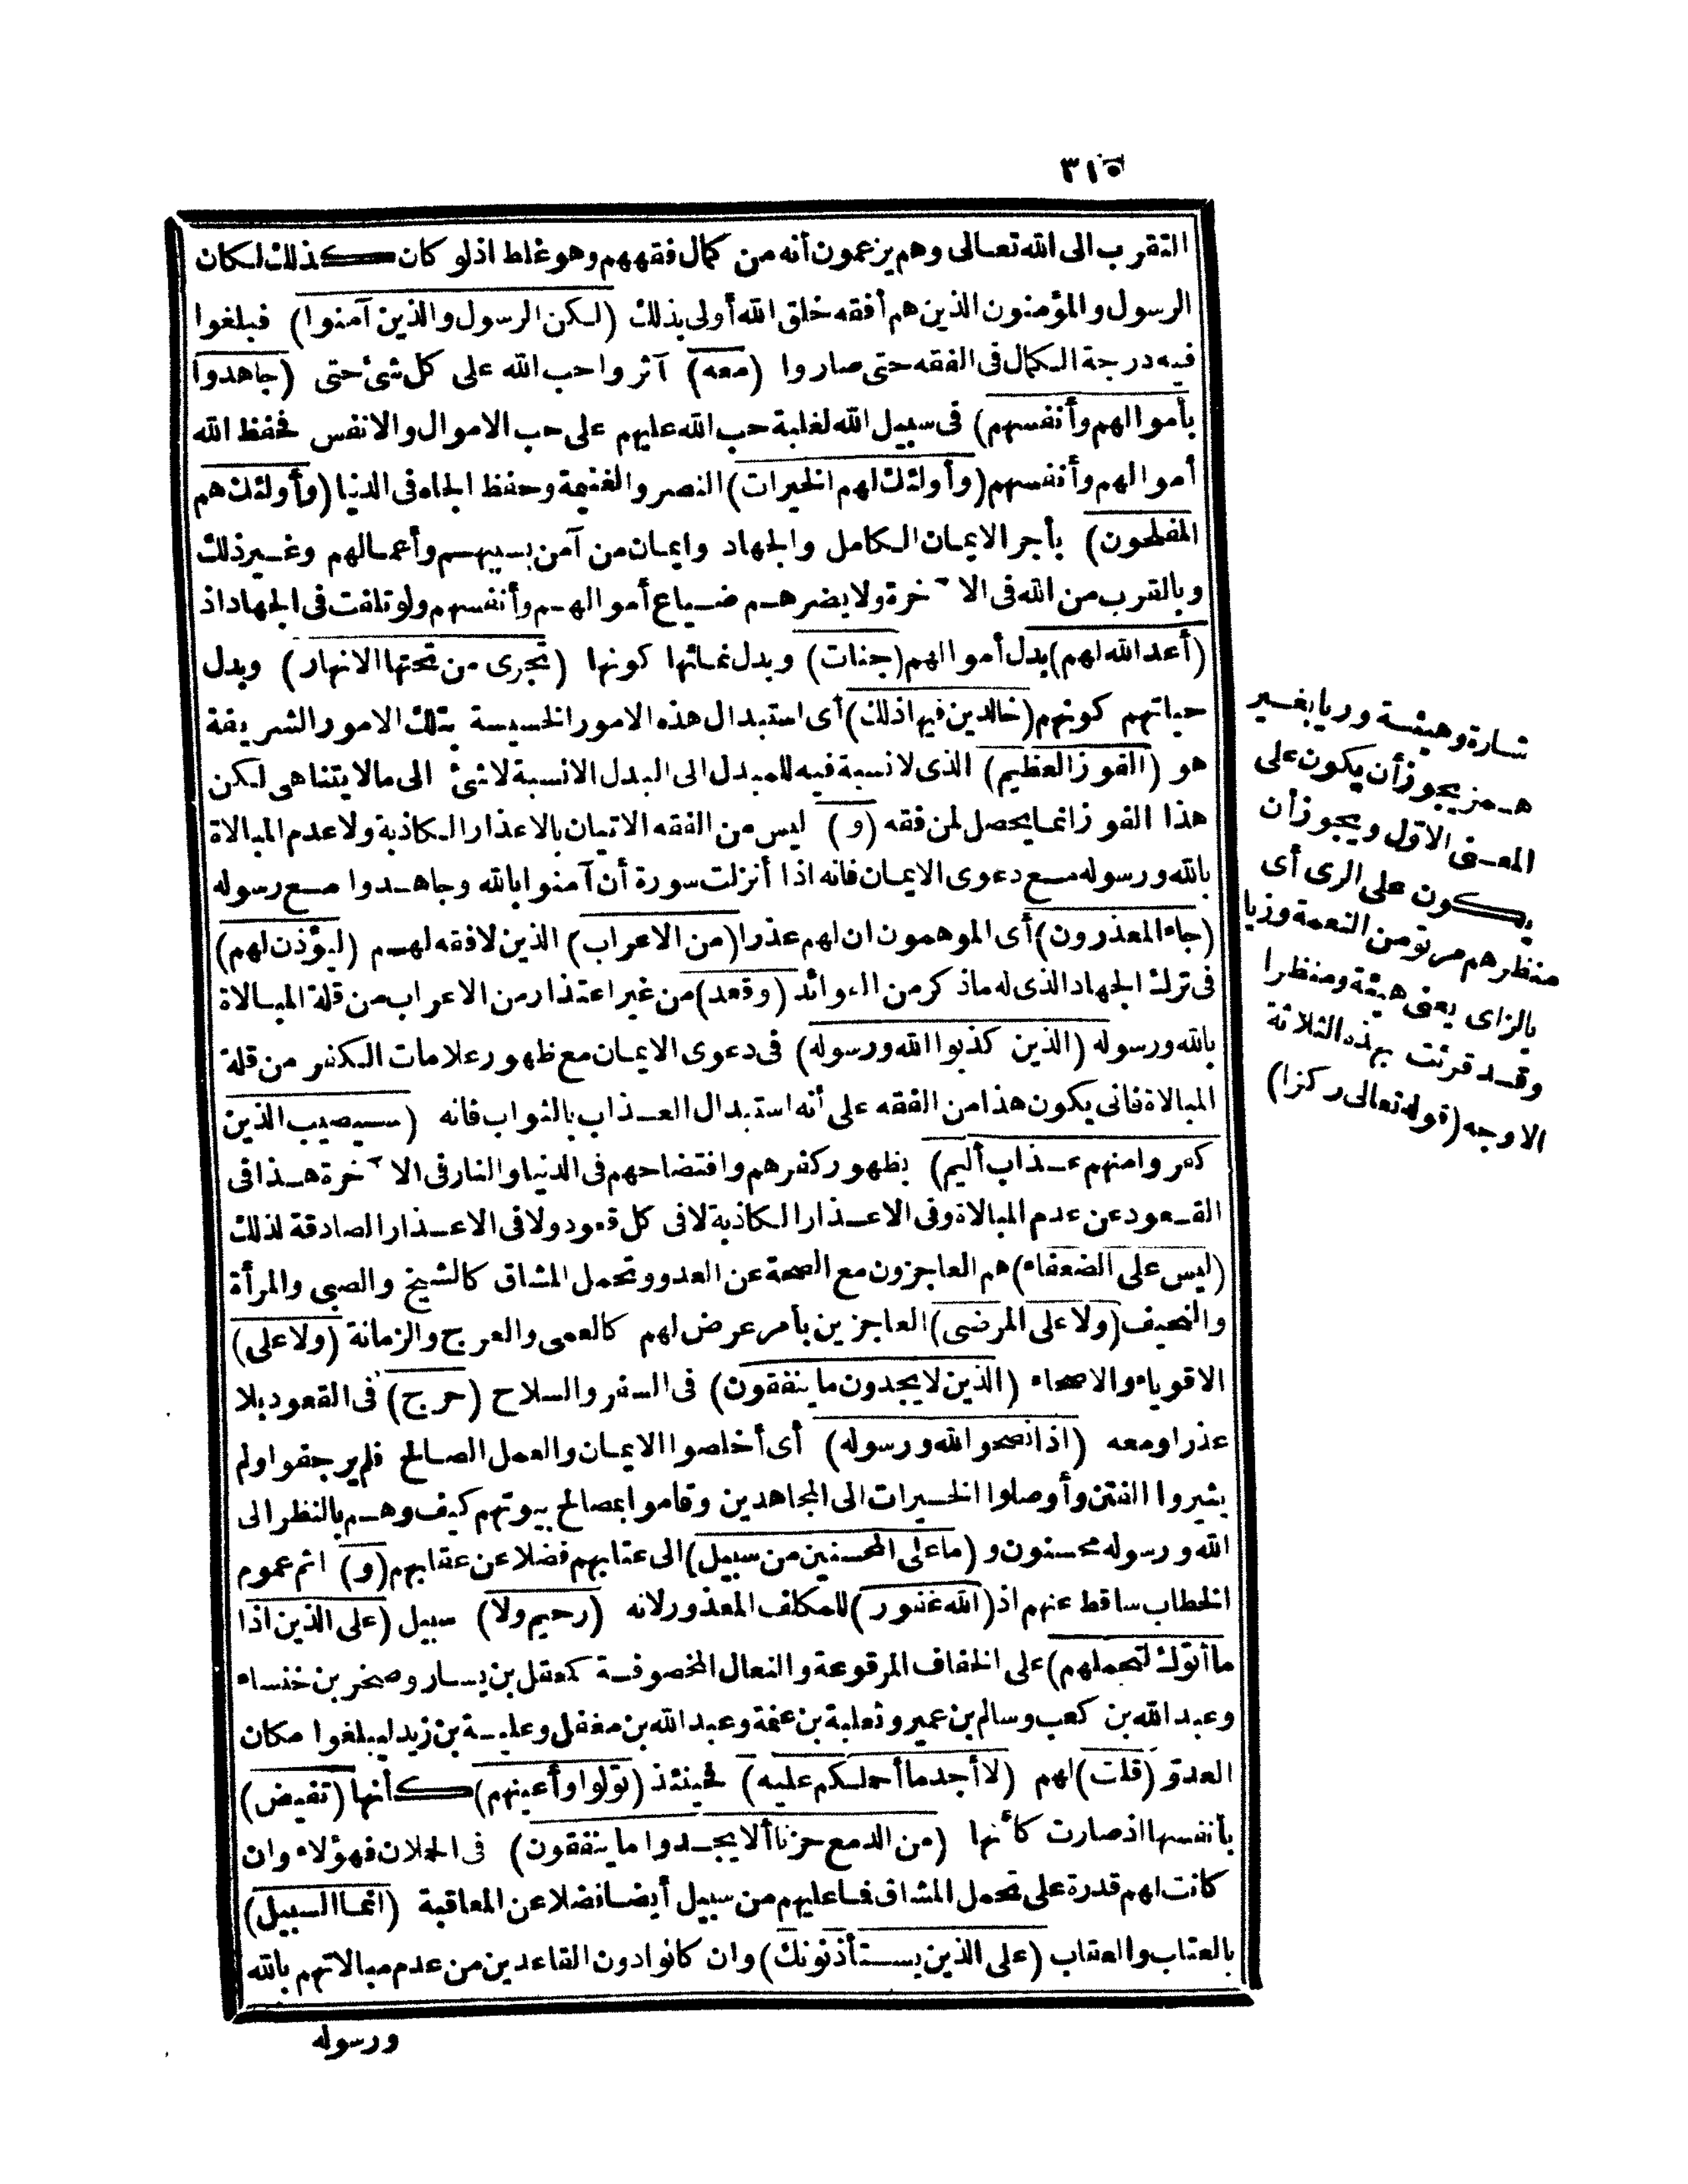 ٣١٥
التقرب الى الله تعالى وهم يزعمون أنه من كمال فقههم وهو غلط اذ لو كان كذلك لكان
الرسول والمؤمنون الذين هم أفقه خلق الله أولى بذلك (لكن الرسول والذين آمنوا) فبلغوا
فيه درجة الكمال فى الفقه حتى صاروا (معه) آثروا حب الله على كل شئ حتى (جاهدوا
بأموالهم وأنفسهم) فى سبيل الله لغلبة حب الله عليهم على حب الاموال والانفس فحفظ الله
أموالهم وأنفسهم (وأولئك لهم الخيرات) النصر والغنيمة وحفظ الجاه فى الدنيا (وأولئك هم
المفلحون) بأجر الايمان الكامل والجهاد وايمان من آمن بسببهم وأعمالهم وغير ذلك
وبالقرب من الله فى الآخرة ولا يضرهم ضياع أموالهم وأنفسهم ولو تلفت فى الجهاد اذ
(أعد الله لهم) بدل أموالهم (جنات) وبدل نمائها كونها (تجرى من تحتها الانهار) وبدل
حياتهم كونهم (خالدين فيها ذلك) أى استبدال هذه الامور الخسيسة بتلك الامور الشريفة
هو (الفوز العظيم) الذى لا نسبة فيه للمبدل الى البدل الا نسبة لا شئ الى ما لا يتناهى لكن
هذا الفوز انما يحصل لمن فقه (و) ليس من الفقه الاتيان بالاعذار الكاذبة ولا عدم المبالاة
بالله ورسوله مع دعوى الايمان فانه اذا أنزلت سورة أن آمنوا بالله وجاهدوا مع رسوله
(جاء المعذرون) أى الموهمون ان لهم عذرا (من الاعراب) الذين لا فقه لهم (ليؤذن لهم)
فى ترك الجهاد الذى له ما ذكر من الفوائد (وقعد) من غير اعتذار من الاعراب من قلة المبالاة
بالله ورسوله (الذين كذبوا الله ورسوله) فى دعوى الايمان مع ظهور علامات الكفر من قلة
المبالاة فانى يكون هذا من الفقه على أنه استبدال العذاب بالثواب فانه (سيصيب الذين
كفروا منهم عذاب أليم) بظهور كفرهم وافتضاحهم فى الدنيا والنار فى الآخرة هذا فى
القعود عن عدم المبالاة وفى الاعذار الكاذبة لا فى كل قعود ولا فى الاعذار الصادقة لذلك
(ليس على الضعفاء) هم العاجزون مع الصحة عن العدو وتحمل المشاق كالشيخ والصبى والمرأة
والنحيف (ولا على المرضى) العاجزين بأمر عرض لهم كالعمى والعرج والزمانة (ولا على)
الاقوياء والاصحاء (الذين لا يجدون ما ينفقون) فى السفر والسلاح (حرج) فى القعود بلا
عذر او معه (اذا نصحوا لله ورسوله) أى أخلصوا الايمان والعمل الصالح فلم يرجفوا ولم
يثيروا الفتن وأوصلوا الخيرات الى المجاهدين وقاموا بمصالح بيوتهم كيف وهم بالنظر الى
الله ورسوله محسنون و (ما على المحسنين من سبيل) الى عتابهم فضلا عن عقابهم (و) اثم عموم
الخطاب ساقط عنهم اذ (الله غفور) للمكلف المعذور لانه (رحيم ولا) سبيل (على الذين اذا
ما أتوك لتحملهم) على الخفاف المرقوعة والنعال المخصوفة كمعقل بن يسار وصخر بن خنساء
وعبد الله بن كعب وسالم بن عمير وثعلبة بن عنمة وعبد الله بن مغفل وعلية بن زيد ليبلغوا مكان
العدو (قلت) لهم (لا أجد ما أحملكم عليه) فحينئذ (تولوا وأعينهم) كأنها (تفيض)
بأنفسها اذ صارت كأنها (من الدمع حزنا ألا يجدوا ما ينفقون) فى الحملان فهؤلاء وان
كانت لهم قدرة على تحمل المشاق فما عليهم من سبيل أيضا فضلا عن المعاقبة (انما السبيل)
بالعتاب والعقاب (على الذين يستأذنونك) وان كانوا دون القاعدين من عدم مبالاتهم بالله
ورسوله
شارة وهيئة وريا بغير
همز يجوز أن يكون على
المعنى الاول ويجوز أن
يكون على الرى أى
منظرهم مرتو من النعمة وزيا
بالزاى يعنى هيئة ومنظرا
وقد قرئت بهذه الثلاثة
الاوجه (قوله تعالى ركزا)